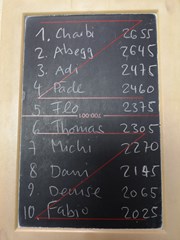 1. Charbi 2655
2. Absegg 2645
3. Adi 2475
4. Päde 2460
5. Flo 2375
6. Thomas 2305
7. Michi 2270
8. Dani 2145
9. Denise 2065
10. Fabio 2025